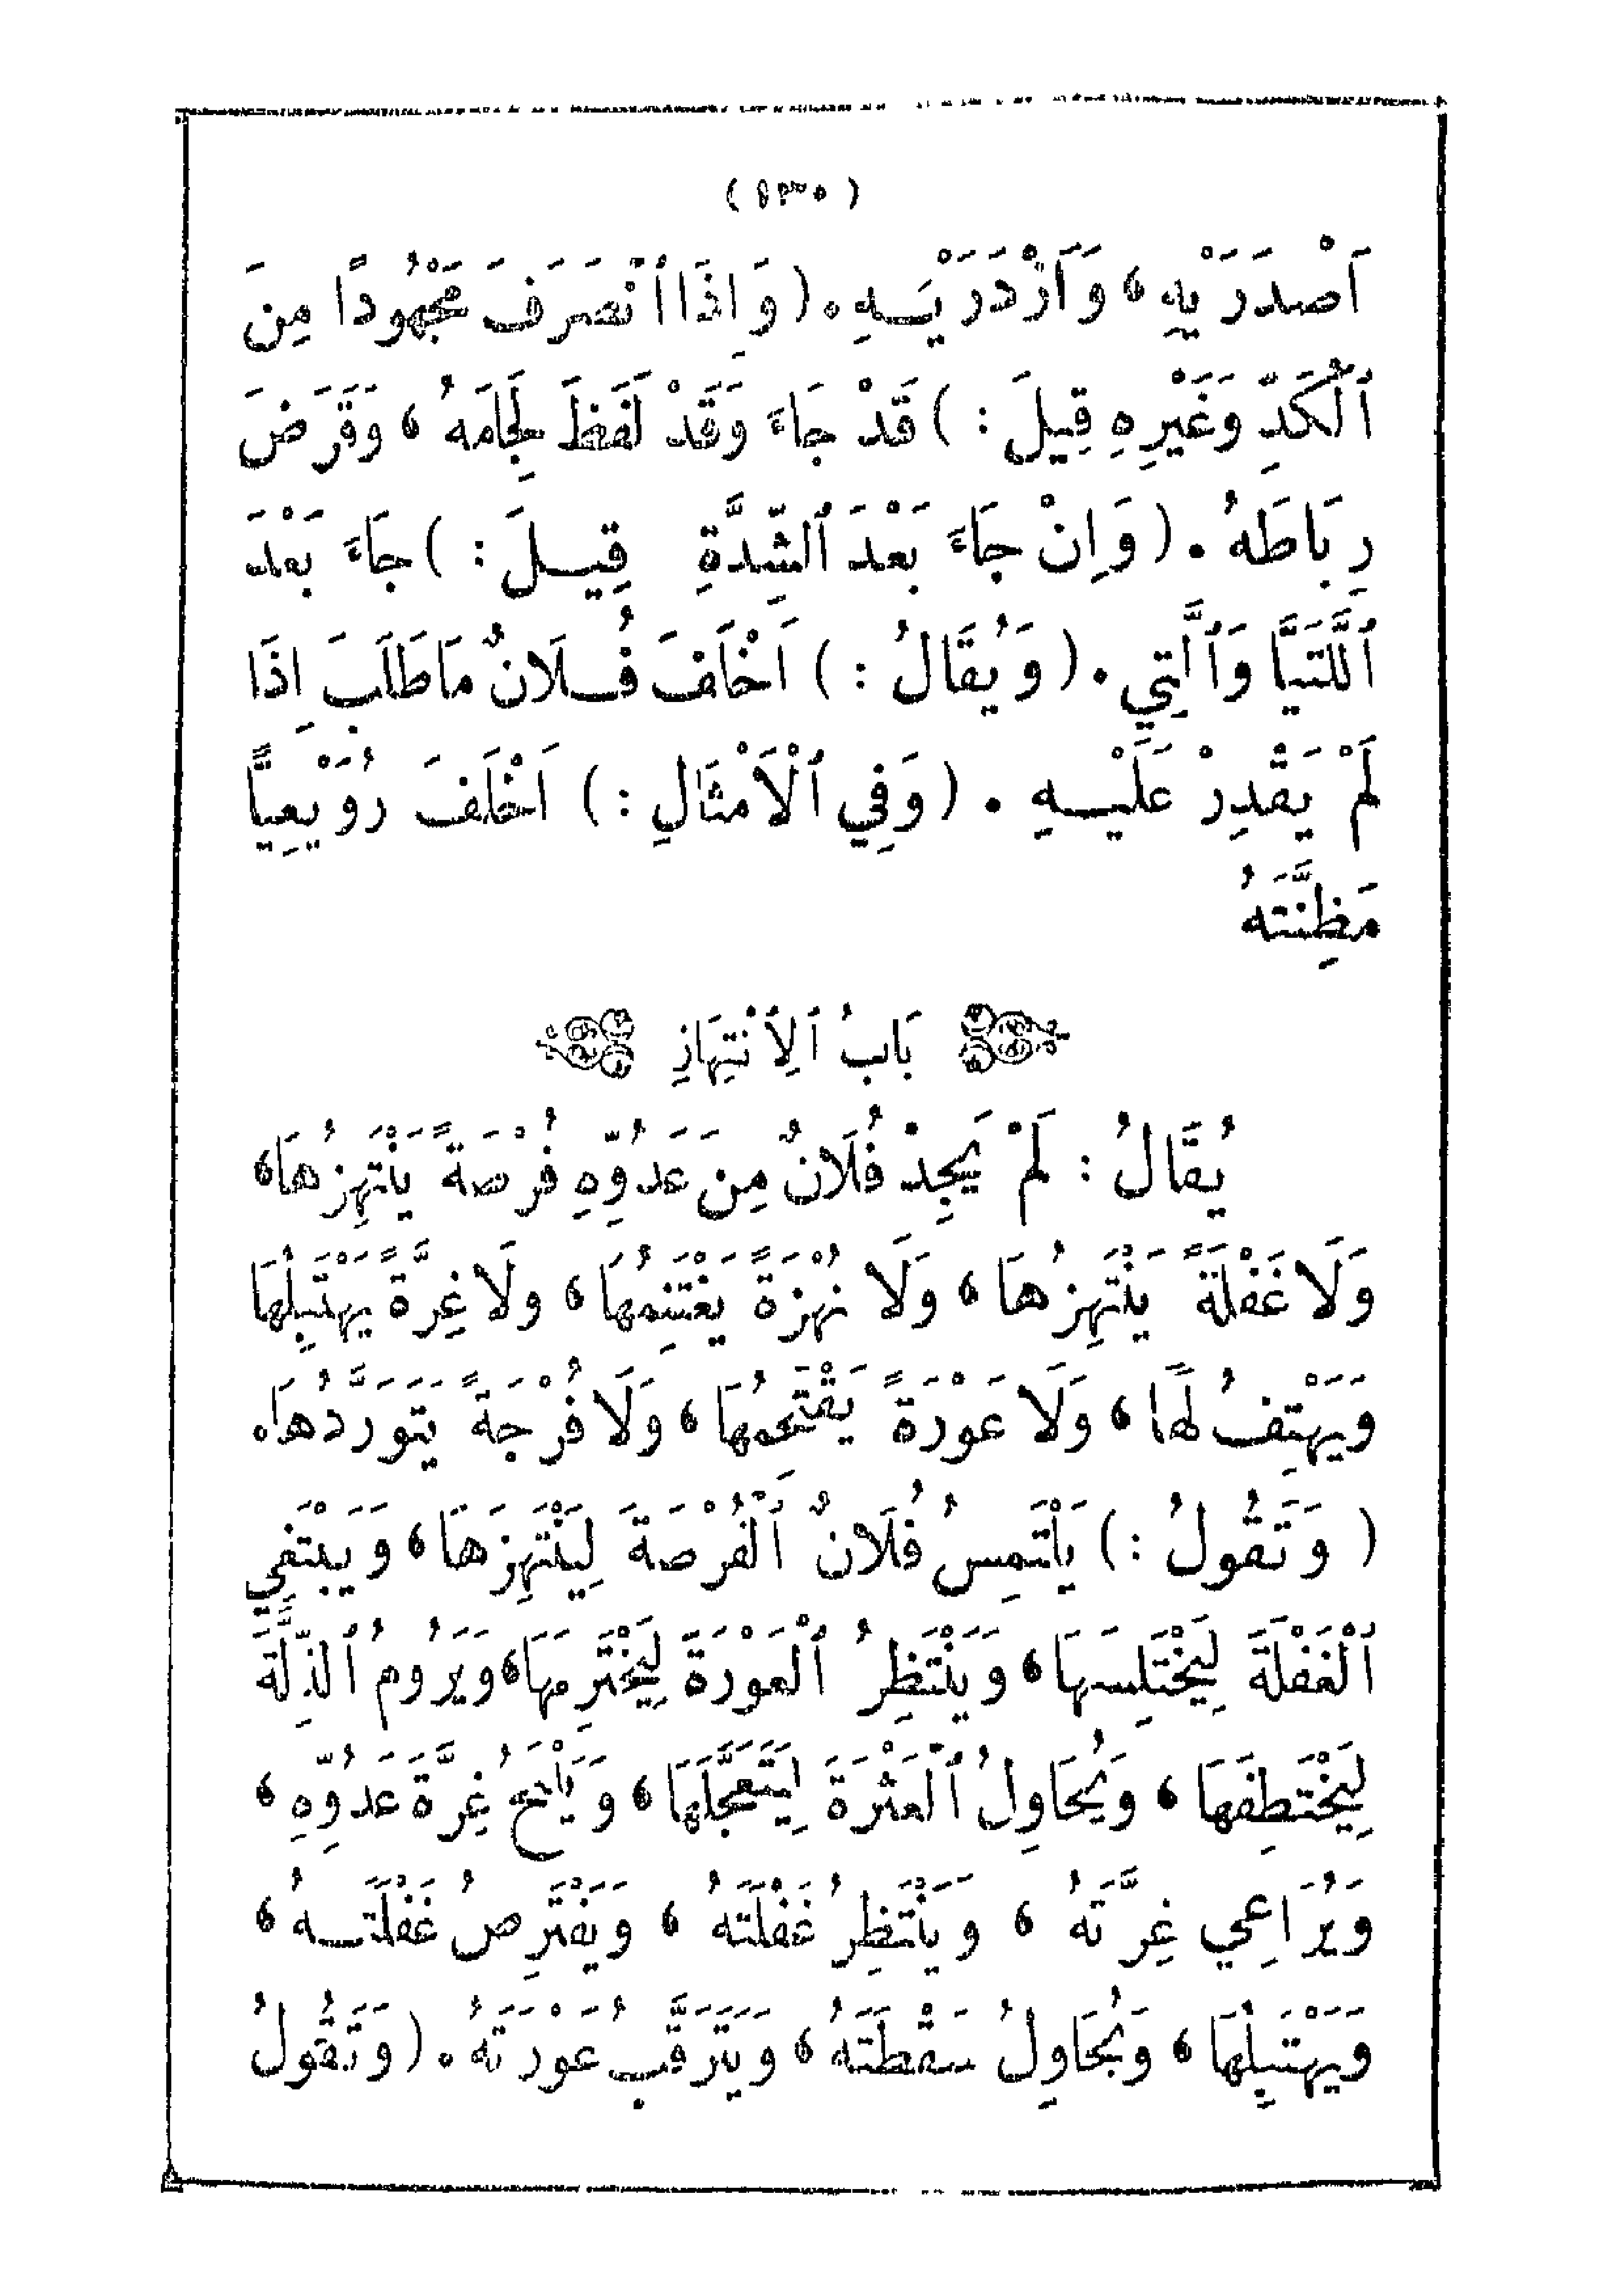 (١٣٥)
اَصْدَرَيْهِ، وَاَزْدَرَيْهِ. (وَاِذَا ٱنْصَرَفَ مَجْهُودًا مِنَ
ٱلْكَدِّ وَغَيْرِهِ قِيلَ:) قَدْ جَاءَ وَقَدْ لَفَظَ لِجَامَهُ، وَقَرَضَ
رِبَاطَهُ. (وَاِنْ جَاءَ بَعْدَ ٱلشِّدَّةِ قِيلَ:) جَاءَ بَعْدَ
ٱللَّتَيَّا وَٱلَّتِي. (وَيُقَالُ:) اَخْلَفَ فُلَانٌ مَا طَلَبَ اِذَا
لَمْ يَقْدِرْ عَلَيْهِ. (وَفِي ٱلْاَمْثَالِ:) اَخْلَفَ رُوَيْعِيًّا
مَظِنَّتَهُ
بَابُ ٱلِٱنْتِهَازِ
يُقَالُ: لَمْ يَجِدْ فُلَانٌ مِنْ عَدُوِّهِ فُرْصَةً يَنْتَهِزُهَا،
وَلَا غَفْلَةً يَنْتَهِزُهَا، وَلَا نُهْزَةً يَغْتَنِمُهَا، وَلَا غِرَّةً يَهْتَبِلُهَا
وَيَهْتِفُ لَهَا، وَلَا عَوْرَةً يَقْتَحِمُهَا، وَلَا فُرْجَةً يَتَوَرَّدُهَا.
(وَتَقُولُ:) يَلْتَمِسُ فُلَانٌ ٱلْفُرْصَةَ لِيَنْتَهِزَهَا، وَيَبْتَغِي
ٱلْغَفْلَةَ لِيَخْتَلِسَهَا، وَيَنْتَظِرُ ٱلْعَوْرَةَ لِيَخْتَرِمَهَا، وَيَرُومُ ٱلذِّلَّةَ
لِيَخْتَطِفَهَا، وَيُحَاوِلُ ٱلْعَثْرَةَ لِيَتَعَجَّلَهَا، وَيَلْمَحُ غِرَّةَ عَدُوِّهِ،
وَيُرَاعِي غِرَّتَهُ، وَيَنْتَظِرُ غَفْلَتَهُ، وَيَفْتَرِصُ غَفْلَتَهُ،
وَيَهْتَبِلُهَا، وَيُحَاوِلُ سَقْطَتَهُ، وَيَتَرَقَّبُ عَوْرَتَهُ. (وَتَقُولُ